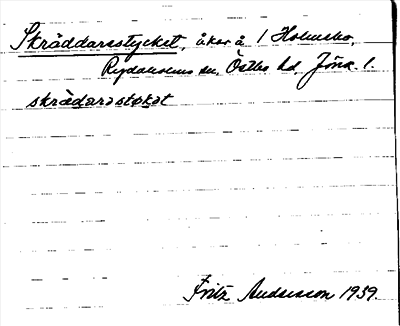 Skräddarsstycket, åker å 1 Holmsbo,
Rydaholms sn, Östbo hd, Jönk. l.
skräd̲arastøkat
Fritz Andersson 1939.